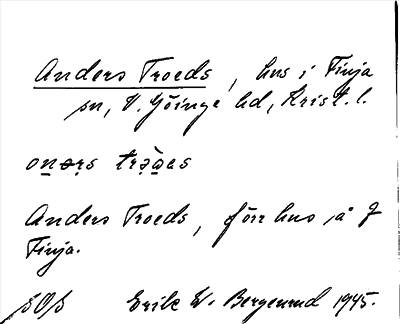 Anders Troeds, hus i Finja
sn, V. Göinge hd, Krist. l.
Anders Troeds, förr hus på J
Finja.
SOS Erik W. Bergerund 1945.